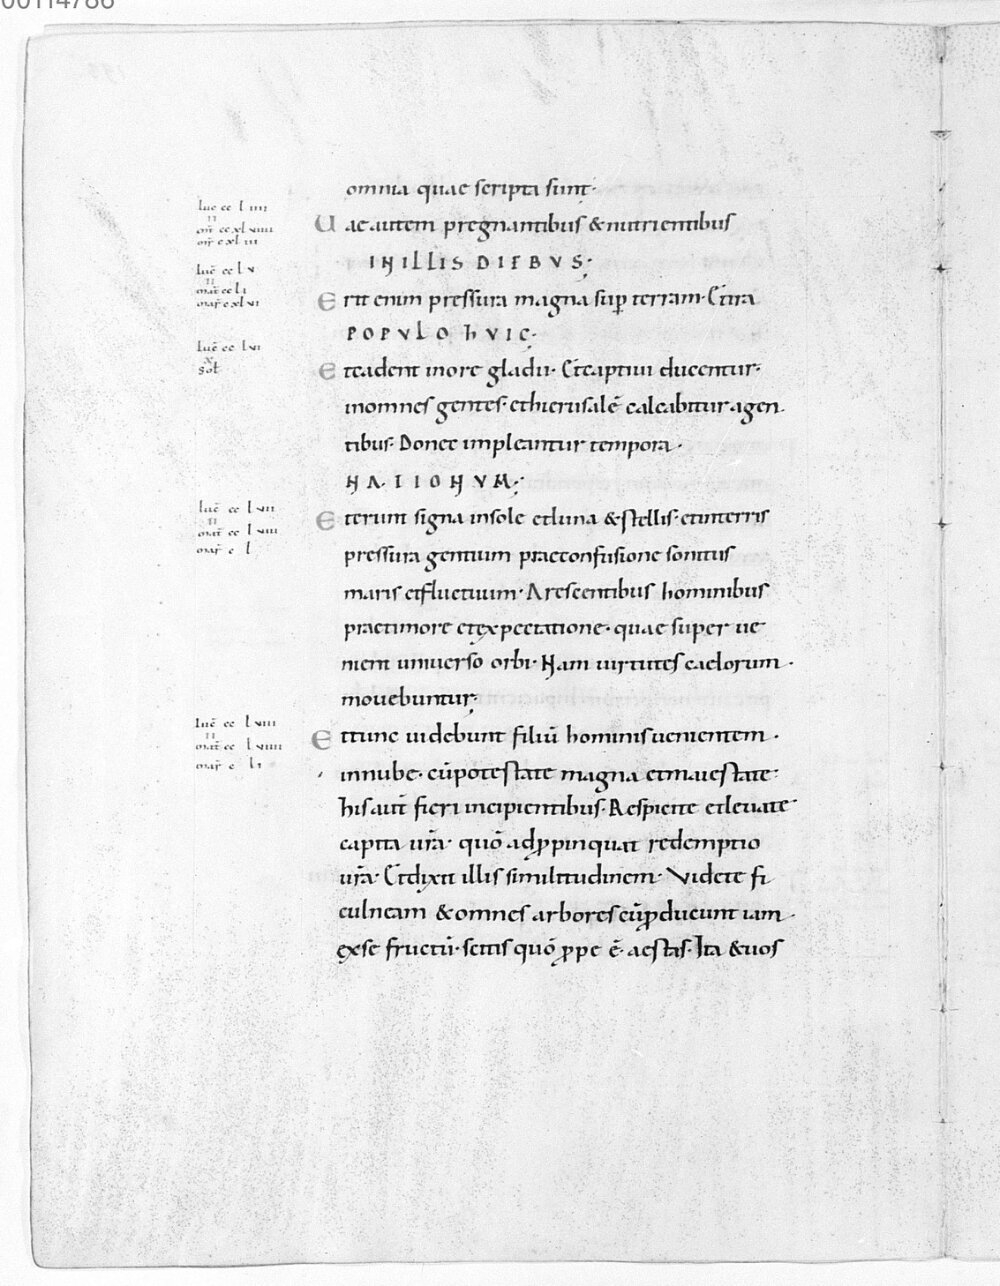 00114786
omnia quae scripta sunt·
luc̄ cc l iiii
Uae autem pregnantibus & nutrientibus
II
mr̄ cc xl viiii
mar̄ c xl iii
IN ILLIS DIEBVS;
luc̄ cc l v
Erit enim pressura magna sup̱ terram· Et ira
II
mat̄ cc l i
mar̄ c xl vi
POPVLO hVIC;
luc̄ cc l vi
Et cadent in ore gladii· Et captiui ducentur·
X
sol̄
in omnes gentes· et hierusalē calcabitur a gen
tibus· Donec impleantur tempora·
NATIONVM;
luc̄ cc l vii
Et erunt signa in sole et luna & stellis· et in terris
II
mat̄ cc l viii
mar̄ c l
pressura gentium prae confusione sonitus
maris et fluctuum· Arescentibus hominibus
prae timore et expectatione· quae super ue
nient uniuerso orbi· Nam uirtutes caelorum·
mouebuntur;
luc̄ cc l viii
Et tunc uidebunt filiū hominis uenientem·
II
mat̄ cc l viiii
mar̄ c l i
in nube· cū potestate magna et maiestate·
his aut̄ fieri incipientibus· Respicite et leuate·
capita ur̄a· quō adp̱pinquat redemptio
ur̄a· Et dixit illis similitudinem· Videte fi
culneam & omnes arbores cū p̱ducunt iam·
ex se fructū· scitis quō p̱pe ē· aestas· Ita & uos